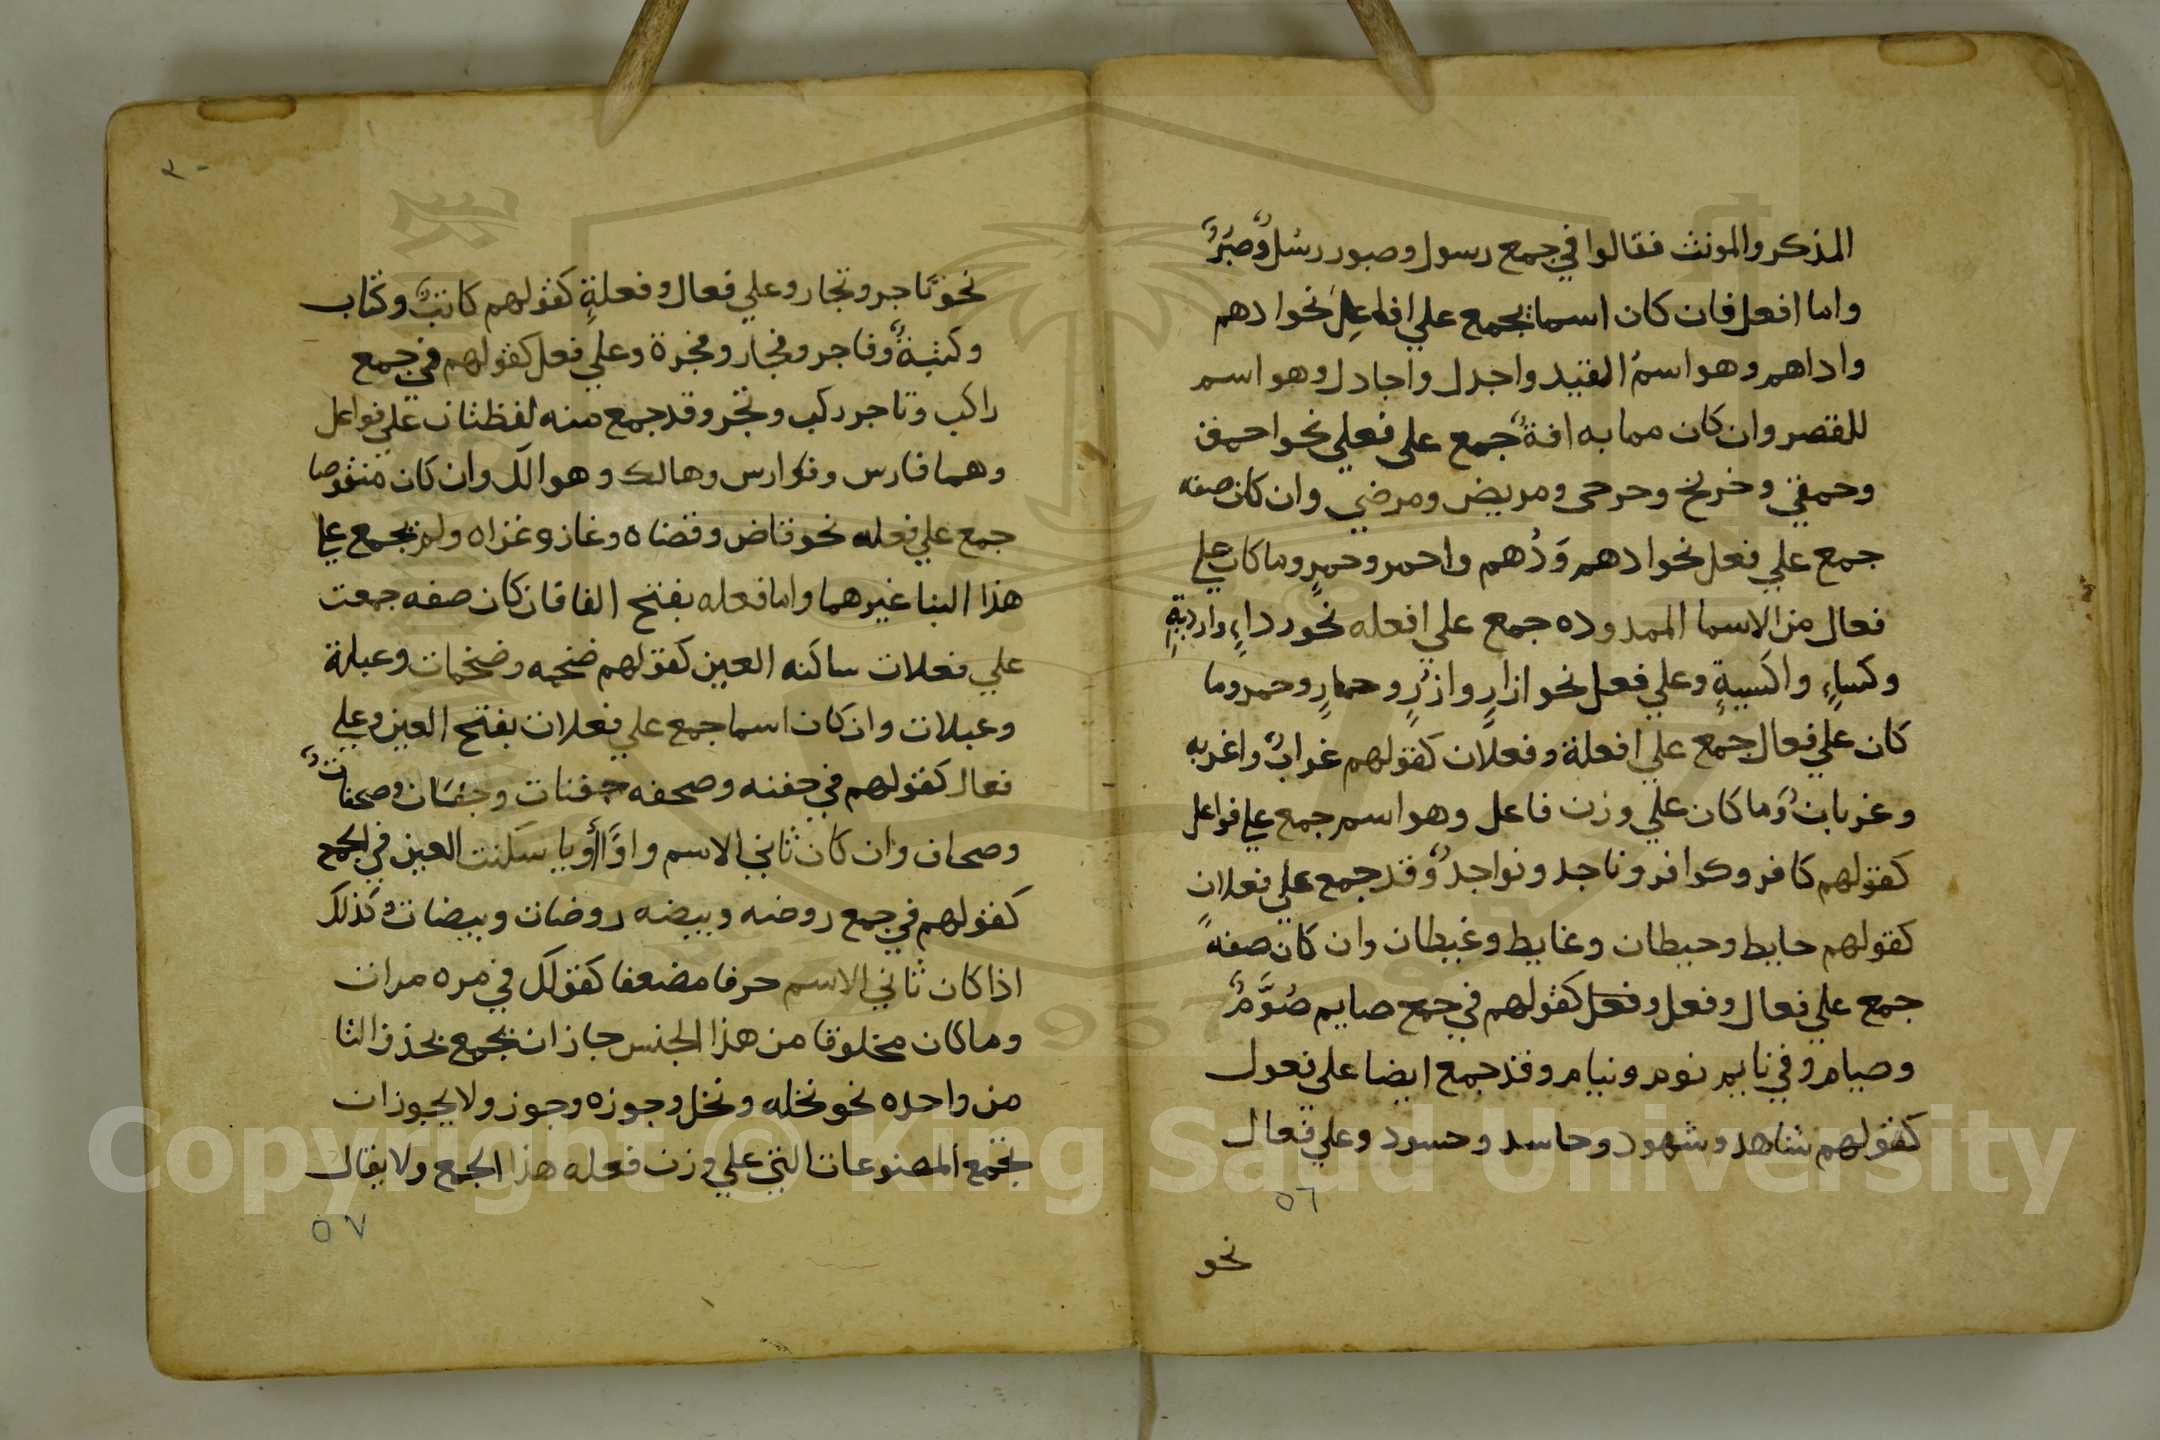 المذكر والمونث فقالوا في جمع رسول وصبور رسُلٌ وصُبُرٌ
واما افعل فان كان اسما يجمع علي افاعِلَ نحو ادهم
واداهم وهو اسمُ القيد واجدل واجادل وهو اسم
للقصر وان كان مما به افةٌ جمع علي فعلي نحو احمق
وحمقي وجريح وجرحي ومريض ومرضي وان كان صفه
جمع علي فعل نحو ادهم وَدُهم واحمر وحمرٍ وما كان علي
فعال من الاسما الممدوده جمع علي افعله نحو رداءٍ واردیةٍ
وكساءٍ واكسيةٍ وعلي فعل نحو ازارٍ وازرٍ وحمارٍ وحمر وما
كان علي فعال جمع علي افعلة وفعلان كقولهم غرابٌ واغربه
وغربانٌ وَما كان علي وزن فاعل وهو اسم جمع علي فواعل
كقولهم كافر وكوافر وناجد ونواجدٌ وقد جمع علي فعلان
كقولهم حايط وحيطان وغايط وغيطان وان كان صفةً
جمع علي فعال وفعل وفعل كقولهم في جمع صايم صُوَّمٌ
وصيام وفي نايم نوم ونيام وقد جمع ايضا علي فعول
كقولهم شاهد وشهود وحاسد وحسود وعلي فعال
٥٦
نحو
٢٠
نحو تاجر وتجار وعلي فعال وفعلةٍ كقولهم كاتبٌ وكتاب
وكتبةٌ وفاجر وفجار وفجرة وعلي فعل كقولهم في جمع
راكب وتاجر ركب وتجر وقد جمع منه لفظتان علي فواعل
وهما فارس وفوارس وهالك وهوالك وان كان منقوصا
جمع علي فعله نحو قاض وقضاه وغاز وغزاه ولم يجمع علي
هذا البنا غيرهما واما فعله بفتح الفا فان كان صفه جمعت
علي فعلات ساكنه العين كقولهم ضخمه وضخمات وعبلة
وعبلات وان كان اسما جمع علي فعلات بفتح العين وعلي
فعال كقولهم في جفنه وصحفه جفنات وجفان وصحفاتٌ
وصحاف وان كان ثاني الاسم واوًا أو يا سكنت العين في الجمع
كقولهم في جمع روضه وبيضه روضات وبيضات وكذلك
اذا كان ثاني الاسم حرفا مضعفا كقولك في مره مرات
وما كان مخلوقا من هذا الجنس جاز ان يجمع بحذف التا
من واحده نحو نخله ونخل وجوزه وجوز ولا يجوز ان
تجمع المصنوعات التي علي وزن فعله هذا الجمع ولا يقال
٥٧
Copyright © King Saud University
1957